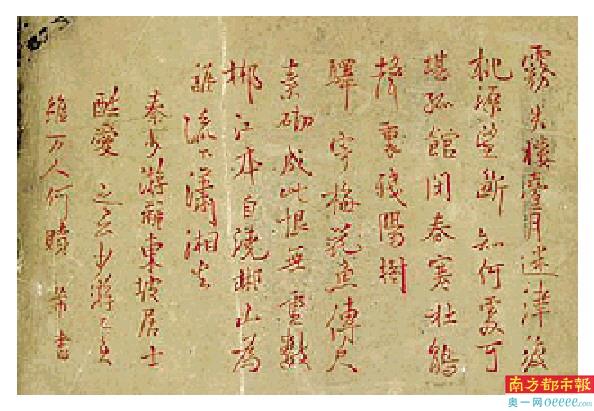 霧失樓臺月迷津渡
桃源望斷知何處可
堪孤館閉春寒杜鵑
聲裏殘陽樹
驛寄梅花魚傳尺
素砌成此恨無重數
郴江本自遶郴山為
誰流下瀟湘去
秦少游辭東坡居士
酷愛之云少游已矣
雖万人何贖 芾書
南方都市報
奥一网oeeee.com